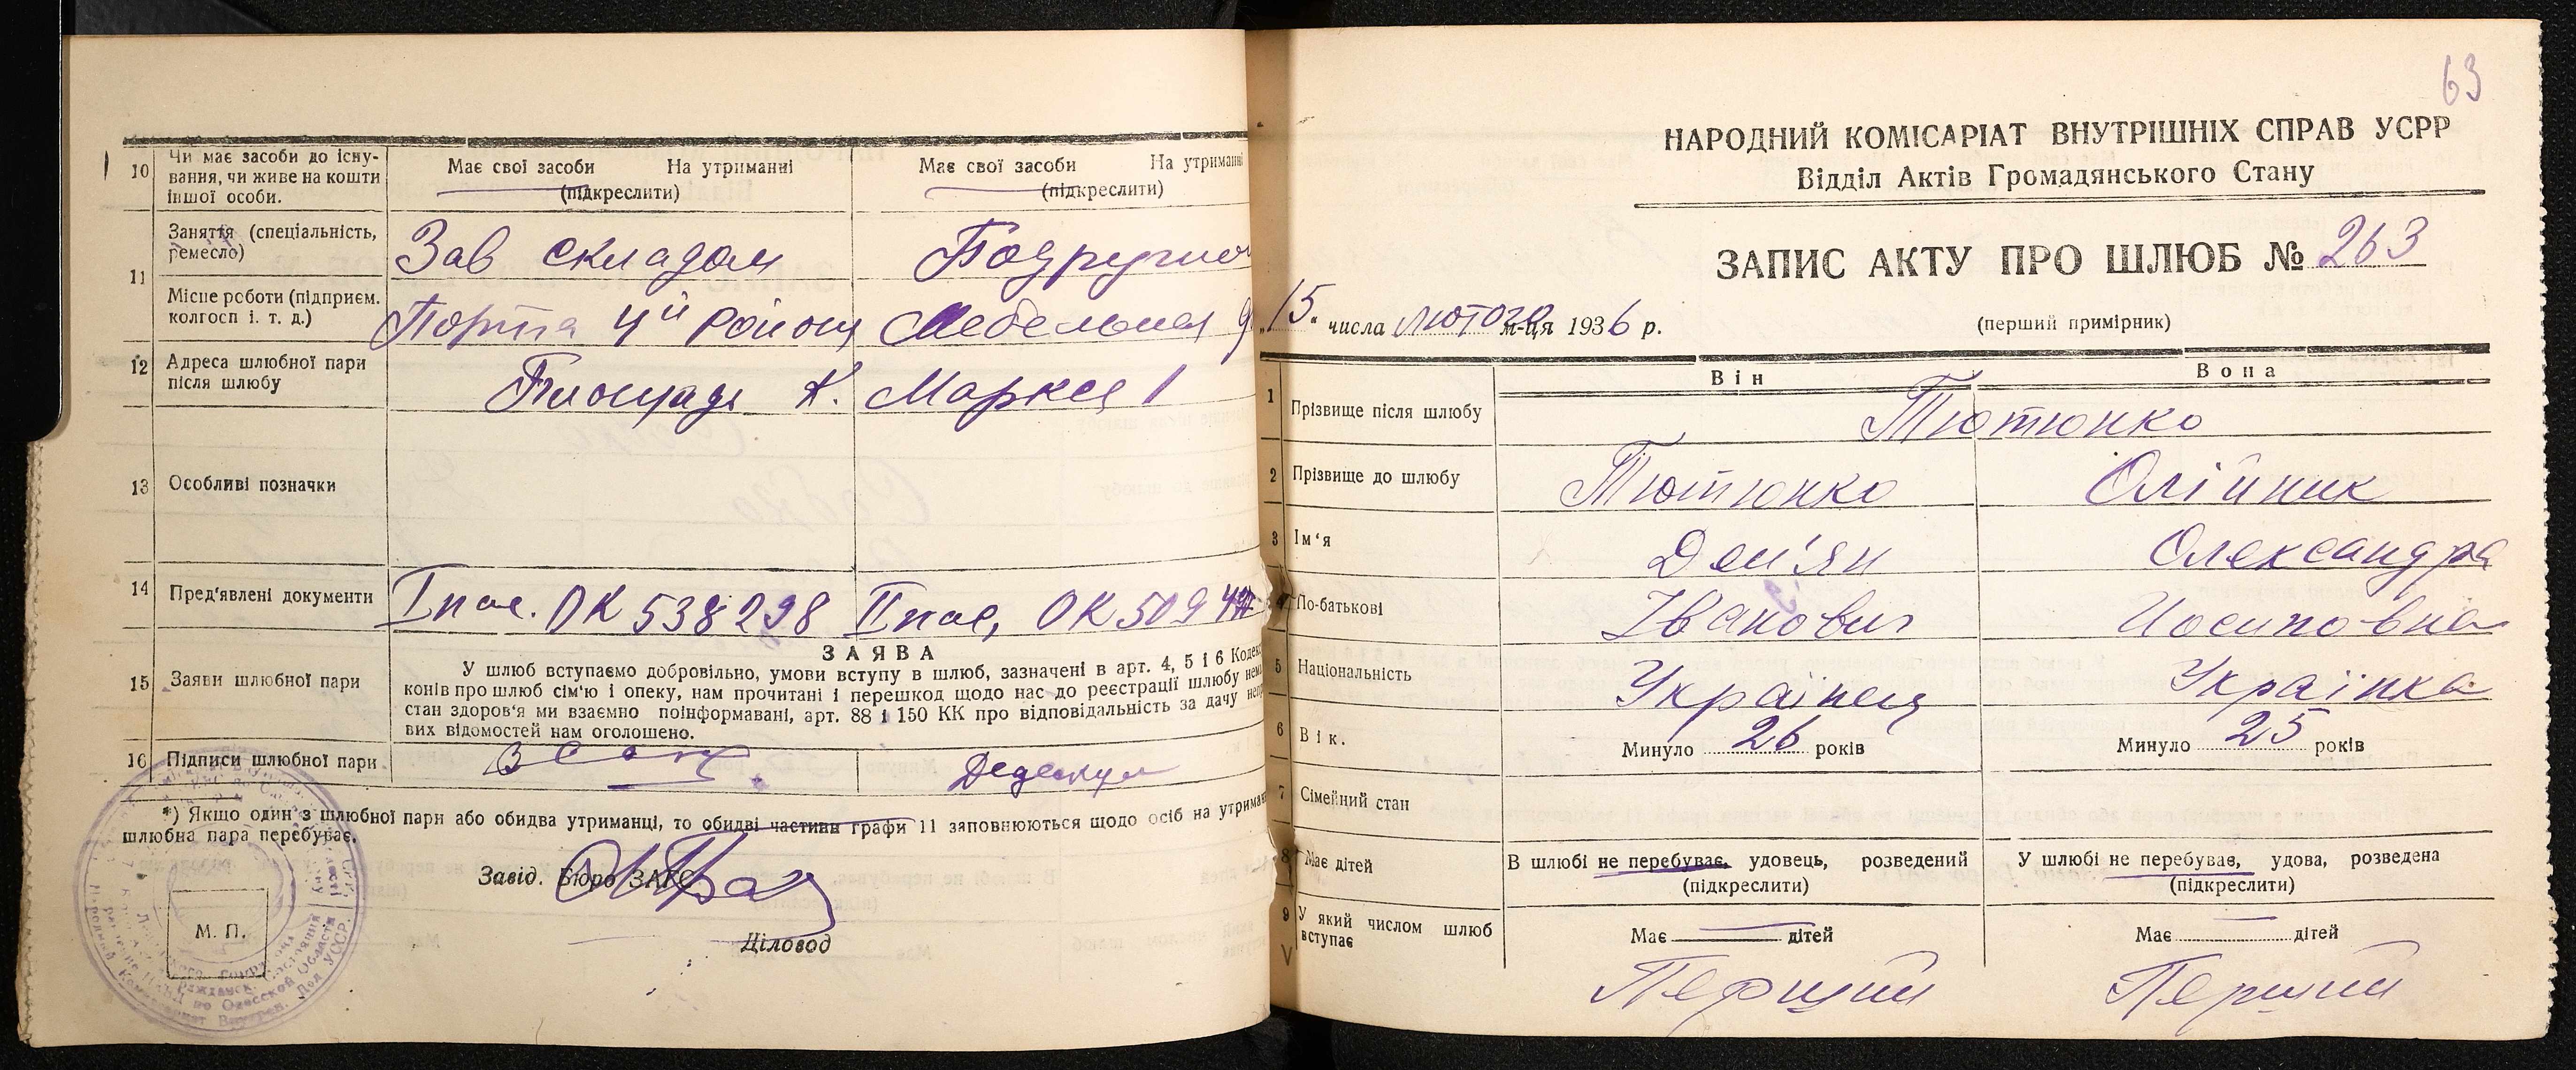 10 Чи має засоби до існу-
вання, чи живе на кошти
іншої особи.
Має свої засоби На утриманні
(підкреслити)
Має свої засоби На утриманні
(підкреслити)
11 Заняття (спеціальність,
ремесло)
Зав складом
Місце роботи (підприєм.
колгосп і. т. д.)
Порта 4й район
Мебельная
12 Адреса шлюбної пари
після шлюбу
Площадь К. Маркса 1
13 Особливі позначки
14 Пред'явлені документи
I пас. ОК 538298 II пас, ОК 5094
ЗАЯВА
15 Заяви шлюбної пари
У шлюб вступаємо добровільно, умови вступу в шлюб, зазначені в арт. 4, 5 і 6 Кодекс
конів про шлюб сім'ю і опеку, нам прочитані і перешкод щодо нас до реєстрації шлюбу нем
стан здоров'я ми взаємно поінформавані, арт. 88 і 150 КК про відповідальність за дачу неп
вих відомостей нам оголошено.
16 Підписи шлюбної пари
*) Якщо один з шлюбної пари або обидва утриманці, то обидві частини графи 11 заповнюються щодо осіб на утриман
шлюбна пара перебуває.
Завід. Бюро ЗАГС
М. П.
Діловод
63
НАРОДНИЙ КОМІСАРІАТ ВНУТРІШНІХ СПРАВ УСРР
Відділ Актів Громадянського Стану
ЗАПИС АКТУ ПРО ШЛЮБ № 263
„15“ числа лютого м-ця 1936 р.
(перший примірник)
Він Вона
1 Прізвище після шлюбу Тютюнко
2 Прізвище до шлюбу Тютюнко Олійник
3 Ім'я Дем'ян Олександра
4 По-батькові Іванович Иосиповна
5 Національність Українец Українка
6 Вік. Минуло 26 років Минуло 25 років
7 Сімейний стан
8 Має дітей
В шлюбі не перебуває, удовець, розведений
(підкреслити)
У шлюбі не перебуває, удова, розведена
(підкреслити)
9 У який числом шлюб
вступає
Має — дітей Має — дітей
V
Перщий Перший